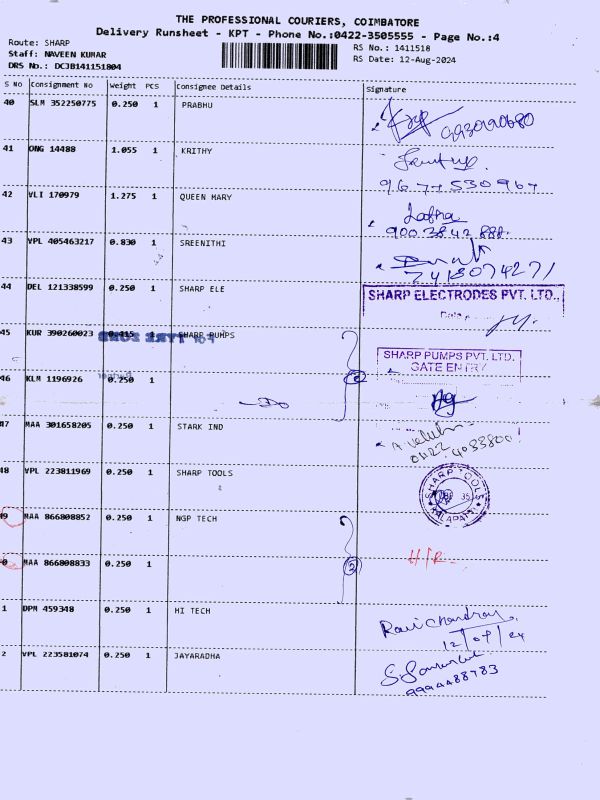 THE PROFESSIONAL COURIERS, COIMBATORE
Delivery Runsheet - KPT - Phone No.:0422-3505555 - Page No.:4
Route: SHARP
RS No.: 1411518
Staff: NAVEEN KUMAR
RS Date: 12-Aug-2024
DRS No.: DCJB141151804
S No Consignment No Weight PCS Consignee Details Signature
40 SLM 352250775 0.250 1 PRABHU
41 ONG 14488 1.055 1 KRITHY
9677530967
42 VLI 170979 1.275 1 QUEEN MARY
9003842888
43 VPL 405463217 0.830 1 SREENITHI
7418074271
44 DEL 121338599 0.250 1 SHARP ELE
SHARP ELECTRODES PVT. LTD.,
45 KUR 390260023 0.415 1 SHARP PUMPS
SHARP PUMPS PVT. LTD.
GATE ENTRY
46 KLM 1196926 0.250 1
47 MAA 301658205 0.250 1 STARK IND
48 VPL 223811969 0.250 1 SHARP TOOLS
SHARP TOOLS
KALAPATTI
49 MAA 866808852 0.250 1 NGP TECH
0 MAA 866808833 0.250 1
1 DPM 459348 0.250 1 HI TECH
Ravichandran
12/08/24
2 VPL 223581074 0.250 1 JAYARADHA